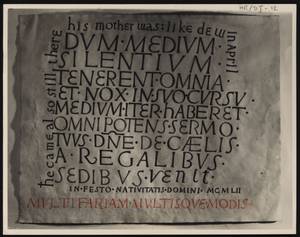 he came al so still there
his mother was: like dew
in April
DVM·MEDIVM·
SILENTIVM·
TENERENT·OMNIA·
ET·NOX·IN·SVO·CVRSV·
MEDIVM·ITER·HABERET·
OMNIPOTENS·SERMO·
TVVS·DNE·DE·CÆLIS·
A·REGALIBVS·
SEDIBVS·venit·
IN·FESTO·NATIVITATIS·DOMINI·MCMLII
MVLTIFARIAM·MVLTISQVE·MODIS·